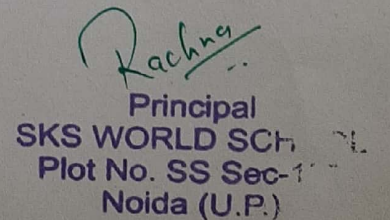 Rachna
Principal
SKS WORLD
Plot No. SS
Noida (U.P.)